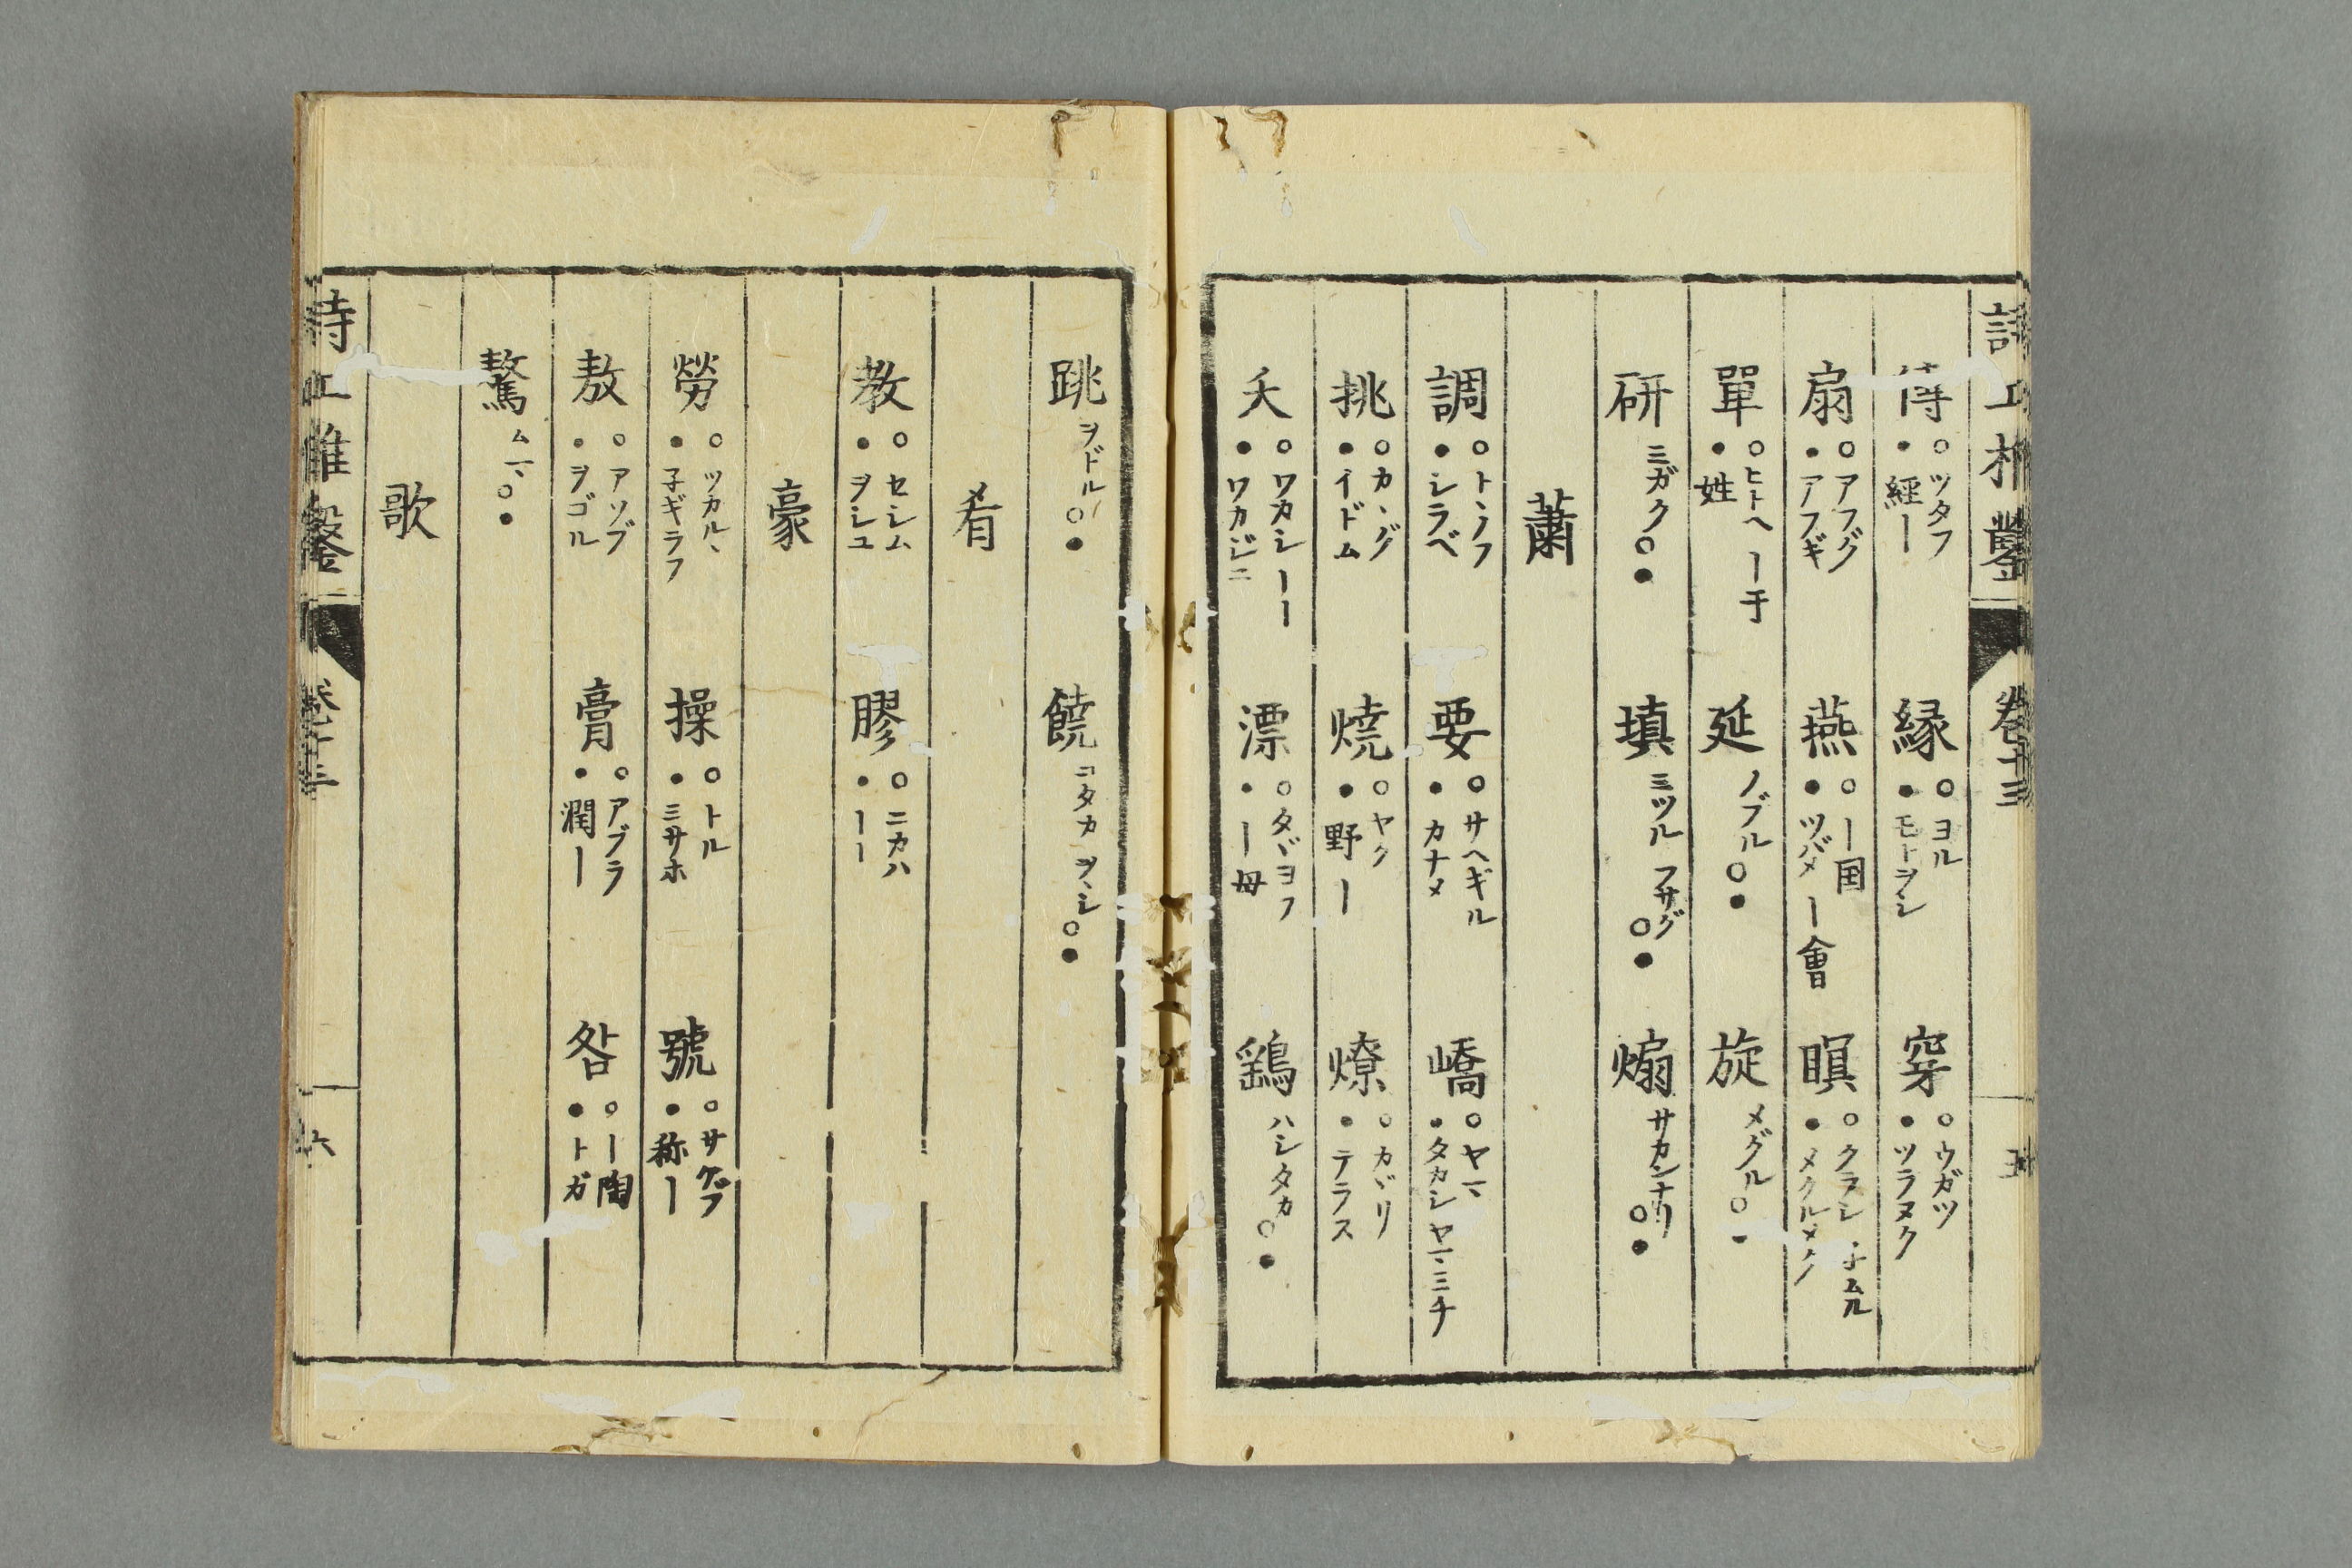 傳 ○ツタフ ●經ー 縁 ○ヨル ●モトヲシ 穿 ○ウガツ ●ツラヌク
扇 ○アフグ ●アフギ 燕 ○ー国 ●ツバメ ー會 瞑 ○クラシ 子ムル ●メクルメク
單 ○ヒトヘ ー于 ●姓 延 ノブル○● 旋 メグル○●
研 ミガク○● 填 ミツル フサグ○● 煽 サカンナリ○●
蕭
調 ○トヽノフ ●シラベ 要 ○サヘギル ●カナメ 嶠 ○ヤマ ●タカシ ヤマミチ
挑 ○カヽグ ●イドム 焼 ○ヤク ●野ー 燎 ○カヾリ ●テラス
夭 ○ワカシ ーー ●ワカジニ 漂 ○タヾヨフ ●ー母 鷂 ハシタカ○●
跳 ヲドル○● 饒 ユタカ ヲヽシ○●
肴
教 ○セシム ●ヲシユ 膠 ○ニカハ ●ーー
豪
勞 ○ツカルヽ ●子ギラフ 操 ○トル ●ミサホ 號 ○サケブ ●称ー
敖 ○アソブ ●ヲゴル 膏 ○アブラ ●潤ー 咎 ○ー陶 ●トガ
驁 ムマ○●
歌
卷十三
六